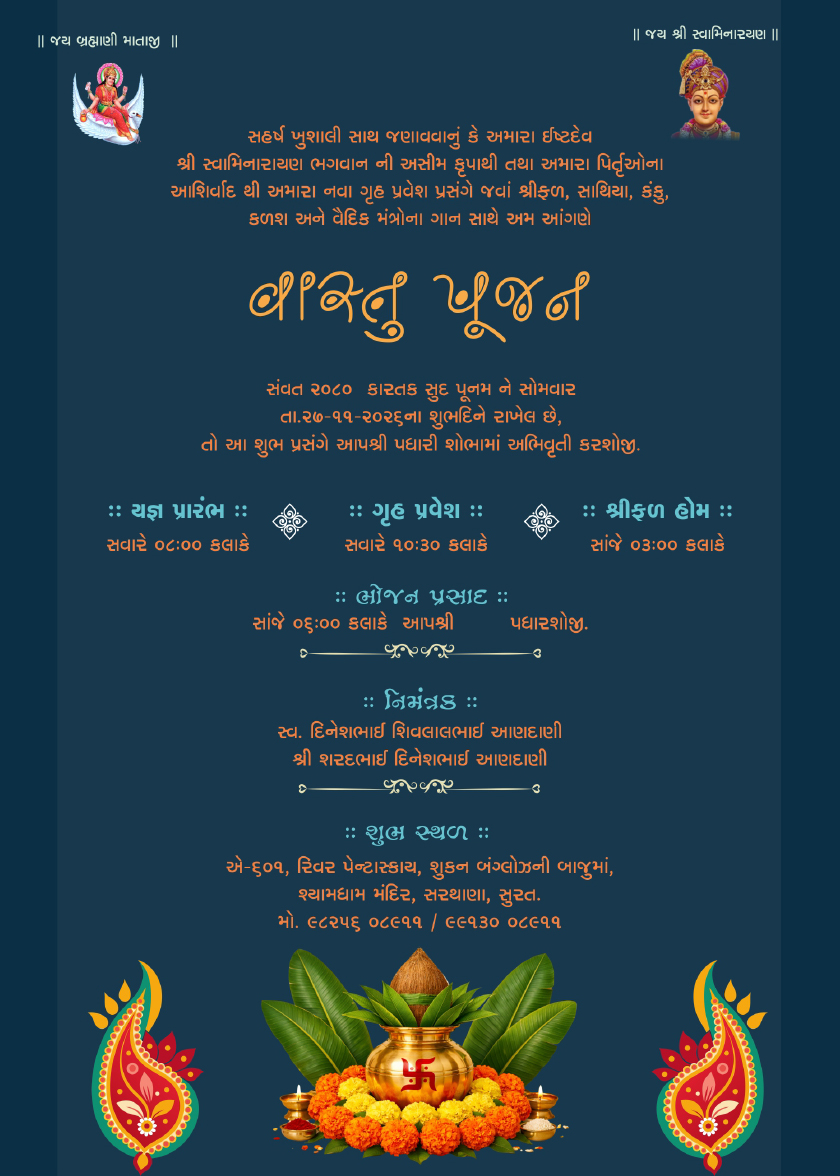 || જય બ્રહ્માણી માતાજી ||
|| જય શ્રી સ્વામિનારાયણ ||
સહર્ષ ખુશાલી સાથ જણાવવાનું કે અમારા ઈષ્ટદેવ
શ્રી સ્વામિનારાયણ ભગવાન ની અસીમ કૃપાથી તથા અમારા પિર્તૃઓના
આશિર્વાદ થી અમારા નવા ગૃહ પ્રવેશ પ્રસંગે જવાં શ્રીફળ, સાથિયા, કંકુ,
કળશ અને વૈદિક મંત્રોના ગાન સાથે અમ આંગણે
વાસ્તુ પૂજન
સંવત ૨૦૮૦ કારતક સુદ પૂનમ ને સોમવાર
તા.૨૭-૧૧-૨૦૨૬ના શુભદિને રાખેલ છે,
તો આ શુભ પ્રસંગે આપશ્રી પધારી શોભામાં અભિવૃતી કરશોજી.
:: યજ્ઞ પ્રારંભ :: :: ગૃહ પ્રવેશ :: :: શ્રીફળ હોમ ::
સવારે ૦૮:૦૦ કલાકે સવારે ૧૦:૩૦ કલાકે સાંજે ૦૩:૦૦ કલાકે
:: ભોજન પ્રસાદ ::
સાંજે ૦૬:૦૦ કલાકે આપશ્રી પધારશોજી.
:: નિમંત્રક ::
સ્વ. દિનેશભાઈ શિવલાલભાઈ આણદાણી
શ્રી શરદભાઈ દિનેશભાઈ આણદાણી
:: શુભ સ્થળ ::
એ-૬૦૧, રિવર પેન્ટાસ્કાય, શુકન બંગ્લોઝની બાજુમાં,
શ્યામધામ મંદિર, સરથાણા, સુરત.
મો. ૯૮૨૫૬ ૦૮૯૧૧ / ૯૯૧૩૦ ૦૮૯૧૧